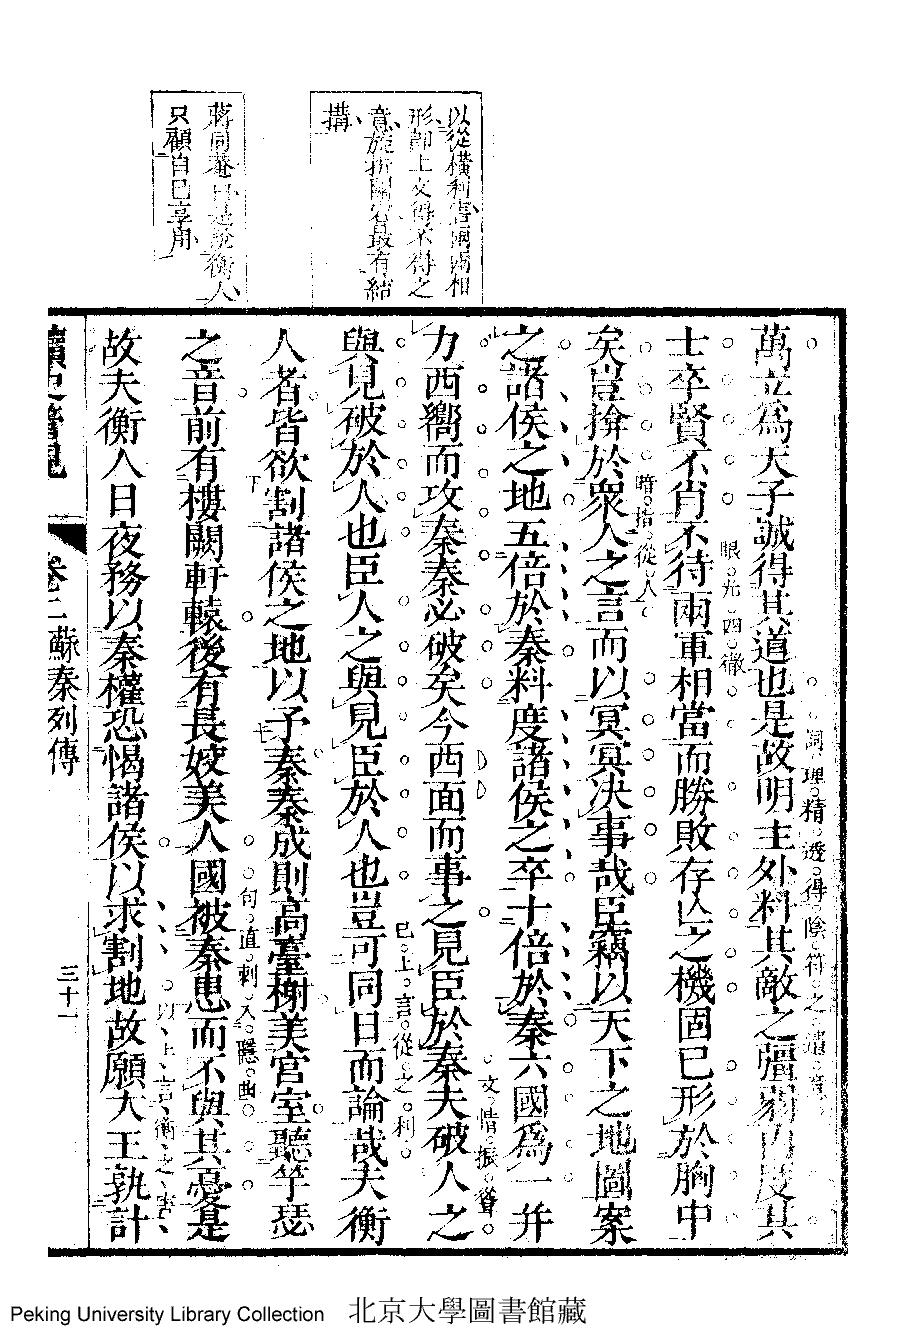 以從橫利害兩兩相
形即上文得不得之
意旋折關害最有結
搆
蔣同菴曰是說衡人
只顧自已享用
萬立為天子誠得其道也是故明主外料其敵之彊弱內度其
洞理精透得陰符之遺意
士卒賢不肖不待兩軍相當而勝敗存亡之機固已形於胸中
眼光四徹
矣豈揜於衆人之言而以冥冥决事哉臣竊以天下之地圖案
暗指從人
之諸侯之地五倍於秦料度諸侯之卒十倍於秦六國為一并
力西嚮而攻秦秦必破矣今西面而事之見臣於秦夫破人之
文情振聳
與見破於人也臣人之與見臣於人也豈可同日而論哉夫衡
已上言從之利
人者皆欲割諸侯之地以予秦秦成則高臺榭美宮室聽竽瑟
之音前有樓闕軒轅後有長姣美人國被秦患而不與其憂是
句直刺入隱曲
故夫衡人日夜務以秦權恐愒諸侯以求割地故願大王孰計
以上言衡之害
讀史管見
卷二蘇秦列傳
三十一
Peking University Library Collection 北京大學圖書館藏